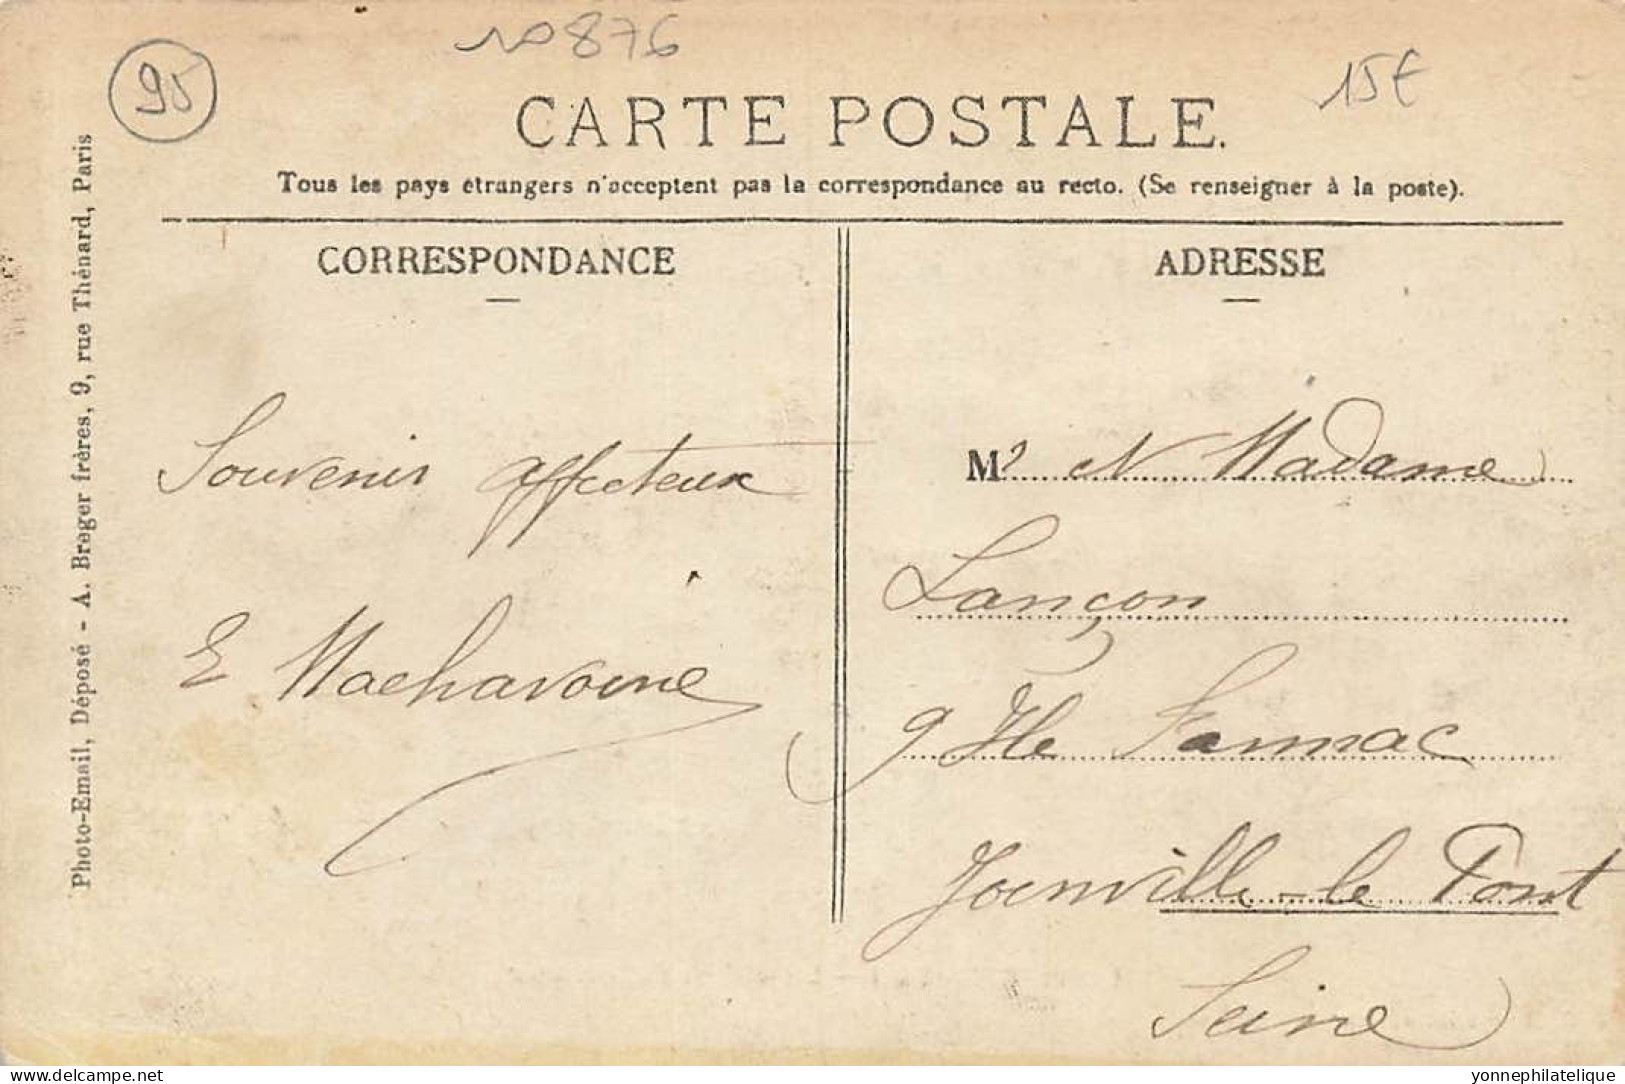 10876
95
15€
CARTE POSTALE.
Tous les pays étrangers n'acceptent pas la correspondance au recto. (Se renseigner à la poste).
CORRESPONDANCE
ADRESSE
Souvenir affectueux
E Machavoine
Mr et Madame
Lançon
9 Ile Fannac
Joinville-le Pont
Seine
Photo-Email, Déposé - A. Breger frères, 9, rue Thénard, Paris
delcampe.net
yonnephilatelique